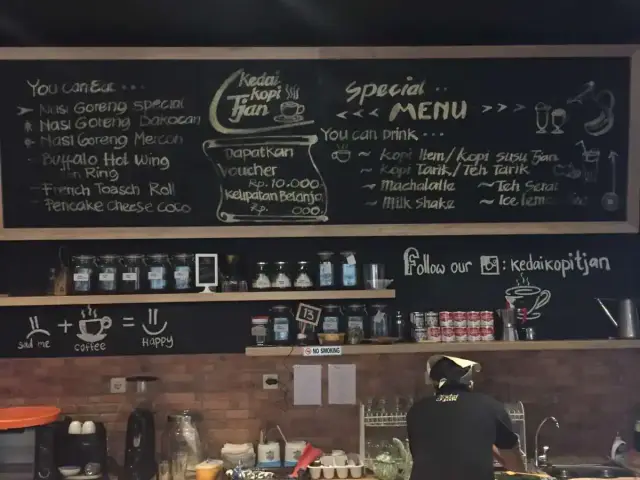 You can Eat ...
Nasi Goreng Special
Nasi Goreng Bakocan
Nasi Goreng Mercon
Buffalo Hot Wing
n Ring
French Toasch Roll
Pencake cheese coco
Kedai
Kopi
Tjan
Dapatkan
Voucher
Rp. 10.000
Kelipatan Belanja
Rp. 000,
Special ..
<<< MENU >>>
You can Drink ...
~ Kopi Item/Kopi susu Tjan
~ Kopi Tarik/Teh Tarik
~ Machalatte ~ Teh
~ Milk shake ~ Ice
Follow our : kedaikopitjan
sad me + coffee = Happy
13
NO SMOKING